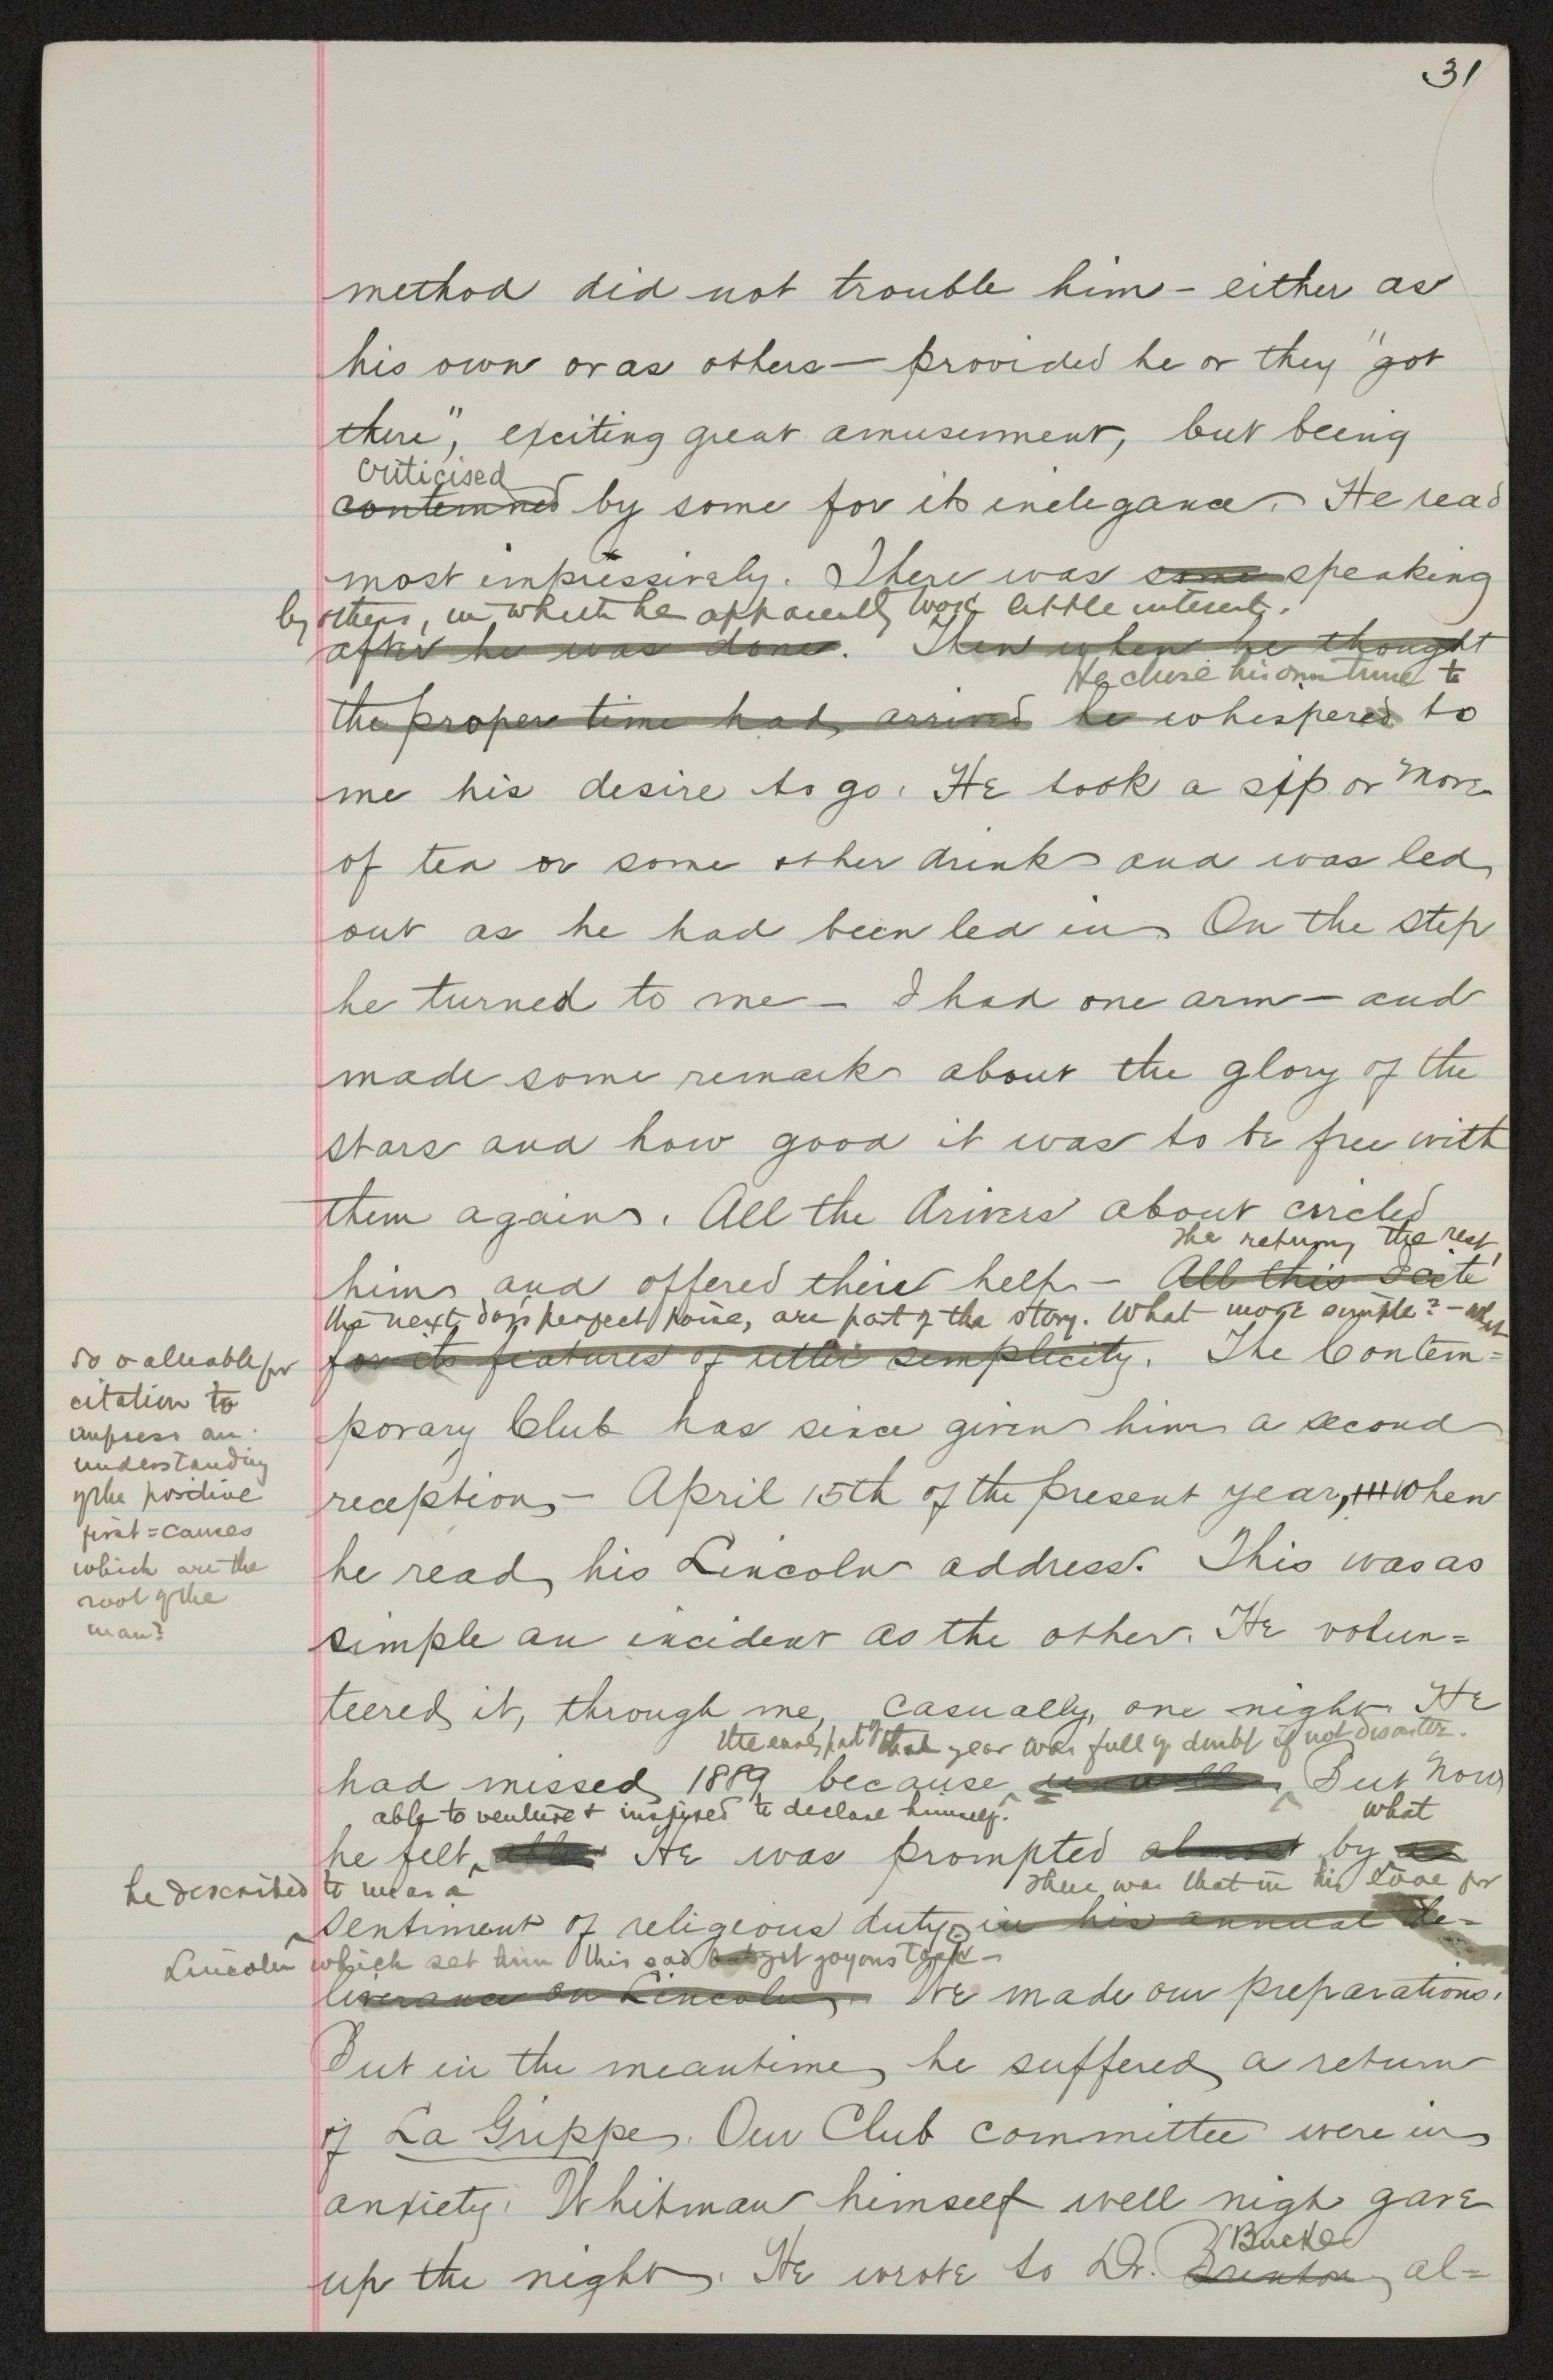 31
method did not trouble him – either as
his own or as others — provided he or they "got
there", exciting great amusement, but being
criticised
contemned by some for its inelegance. He read
most impressively. There was some speaking
by others, in which he apparently took little interest.
after he was done. Then when he thought
He chose his own time to
the proper time had arrived he whispered to
me his desire to go. He took a sip or more
of tea or some other drink and was led
out as he had been led in. On the step
he turned to me – I had one arm – and
made some remark about the glory of the
stars and how good it was to be free with
them again. All the drivers about circled
The return, the rest,
him and offered their help – All this I cite
the next day's perfect poise, are part of the story. What more simple? – what
for its features of utter simplicity. The Contem=
so valuable for
citation to
impress an
understanding
of the positive
first=causes
which are the
root of the
man?
porary Club has since given him a second
reception – April 15th of the present year, when
he read his Lincoln address. This was as
simple an incident as the other. He volun=
teered it, through me, casually, one night. He
the early part of that year was full of doubt if not disaster.
had missed 1889 because unwell. But now
able to venture & inspired to declare himself. what
he felt able He was prompted almost by a
he described to me as a there was that in his love for
sentiment of religious duty in his annual de=
Lincoln which set him this sad yet joyous task –
liverance on Lincoln. We made our preparations.
But in the meantime he suffered a return
of La Grippe. Our Club committee were in
anxiety. Whitman himself well nigh gave
Bucke
up the night. He wrote to Dr. Brinton, al=